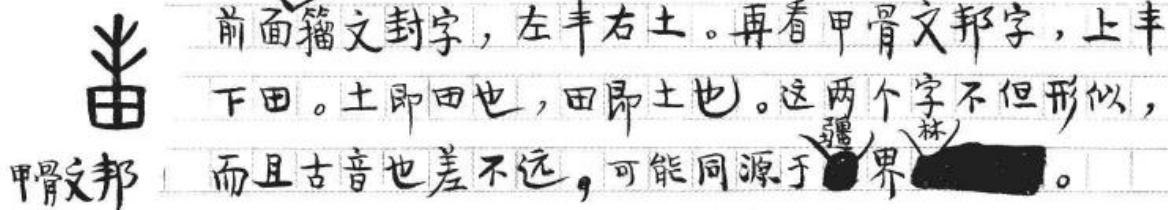 前面籀文封字，左丰右土。再看甲骨文邦字，上丰
下田。土即田也，田即土也。这两个字不但形似，
而且古音也差不远。可能同源于疆界林。
甲骨文邦